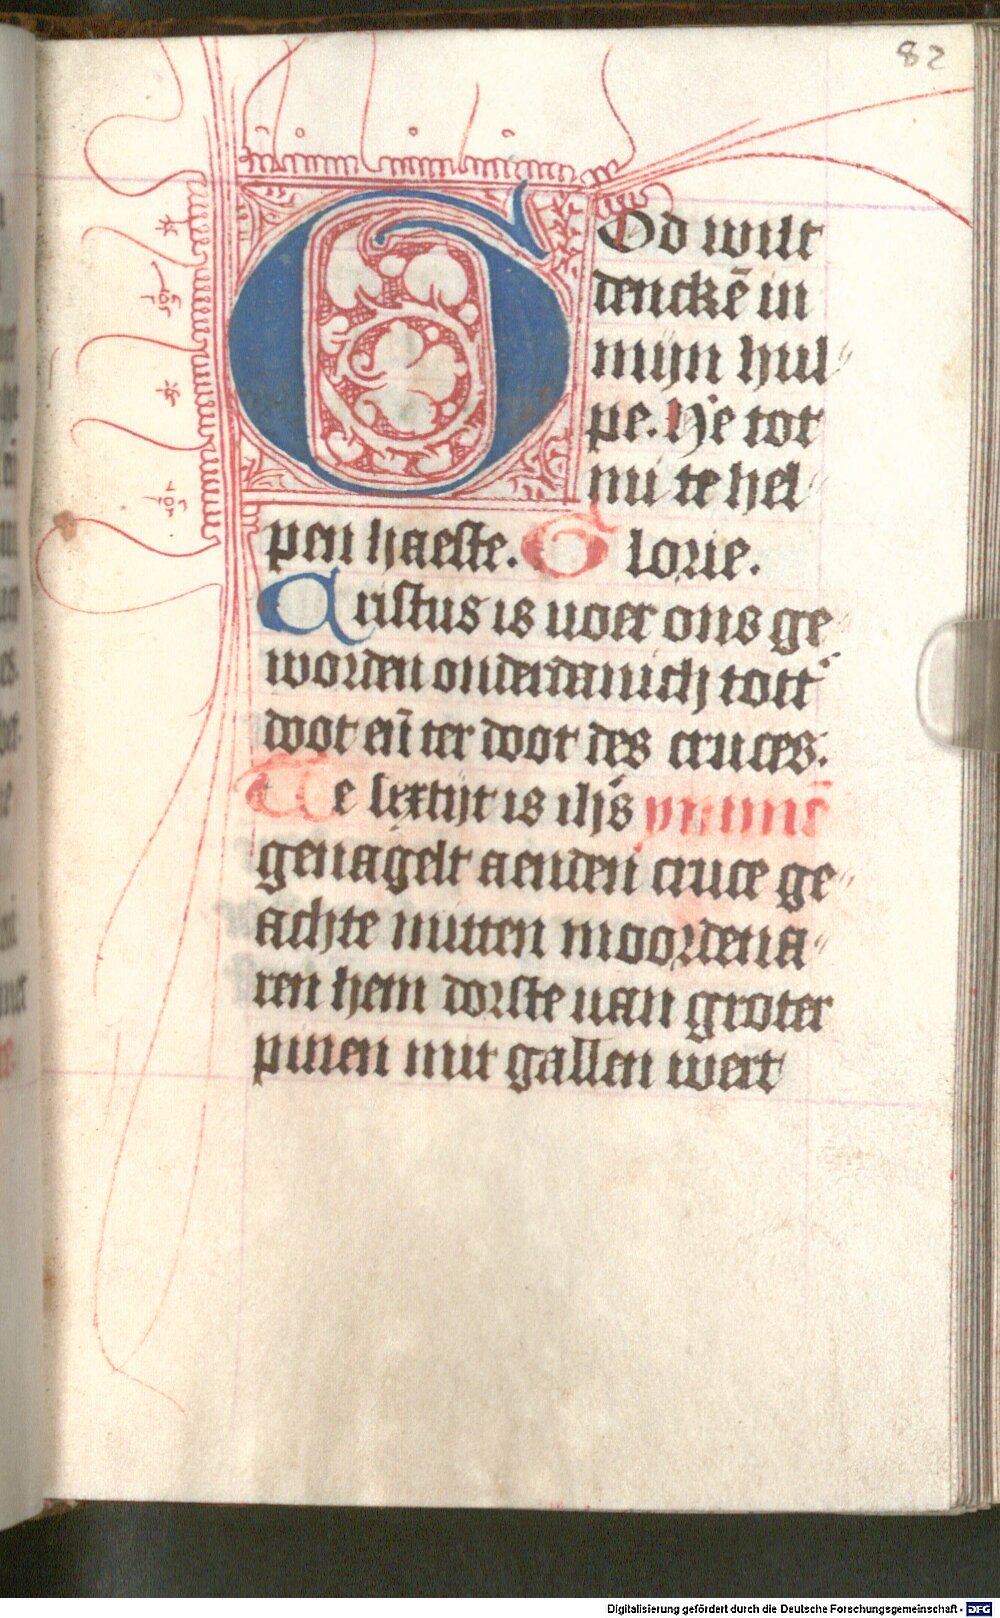 82
God wilt
denckē in
mijn hul〃
pe. He tot
mi te hel〃
pen haeste. Glorie.
Cristus is voer ons ge〃
worden onderdanich tott〃
doot eñ ter doot des cruces.
Te sexttijt is ihs
genagelt aenden cruce ge〃
achte mitten moordena〃
ren hem dorste van groter
pinen mit gallen wert
Digitalisierung gefördert durch die Deutsche Forschungsgemeinschaft - DFG